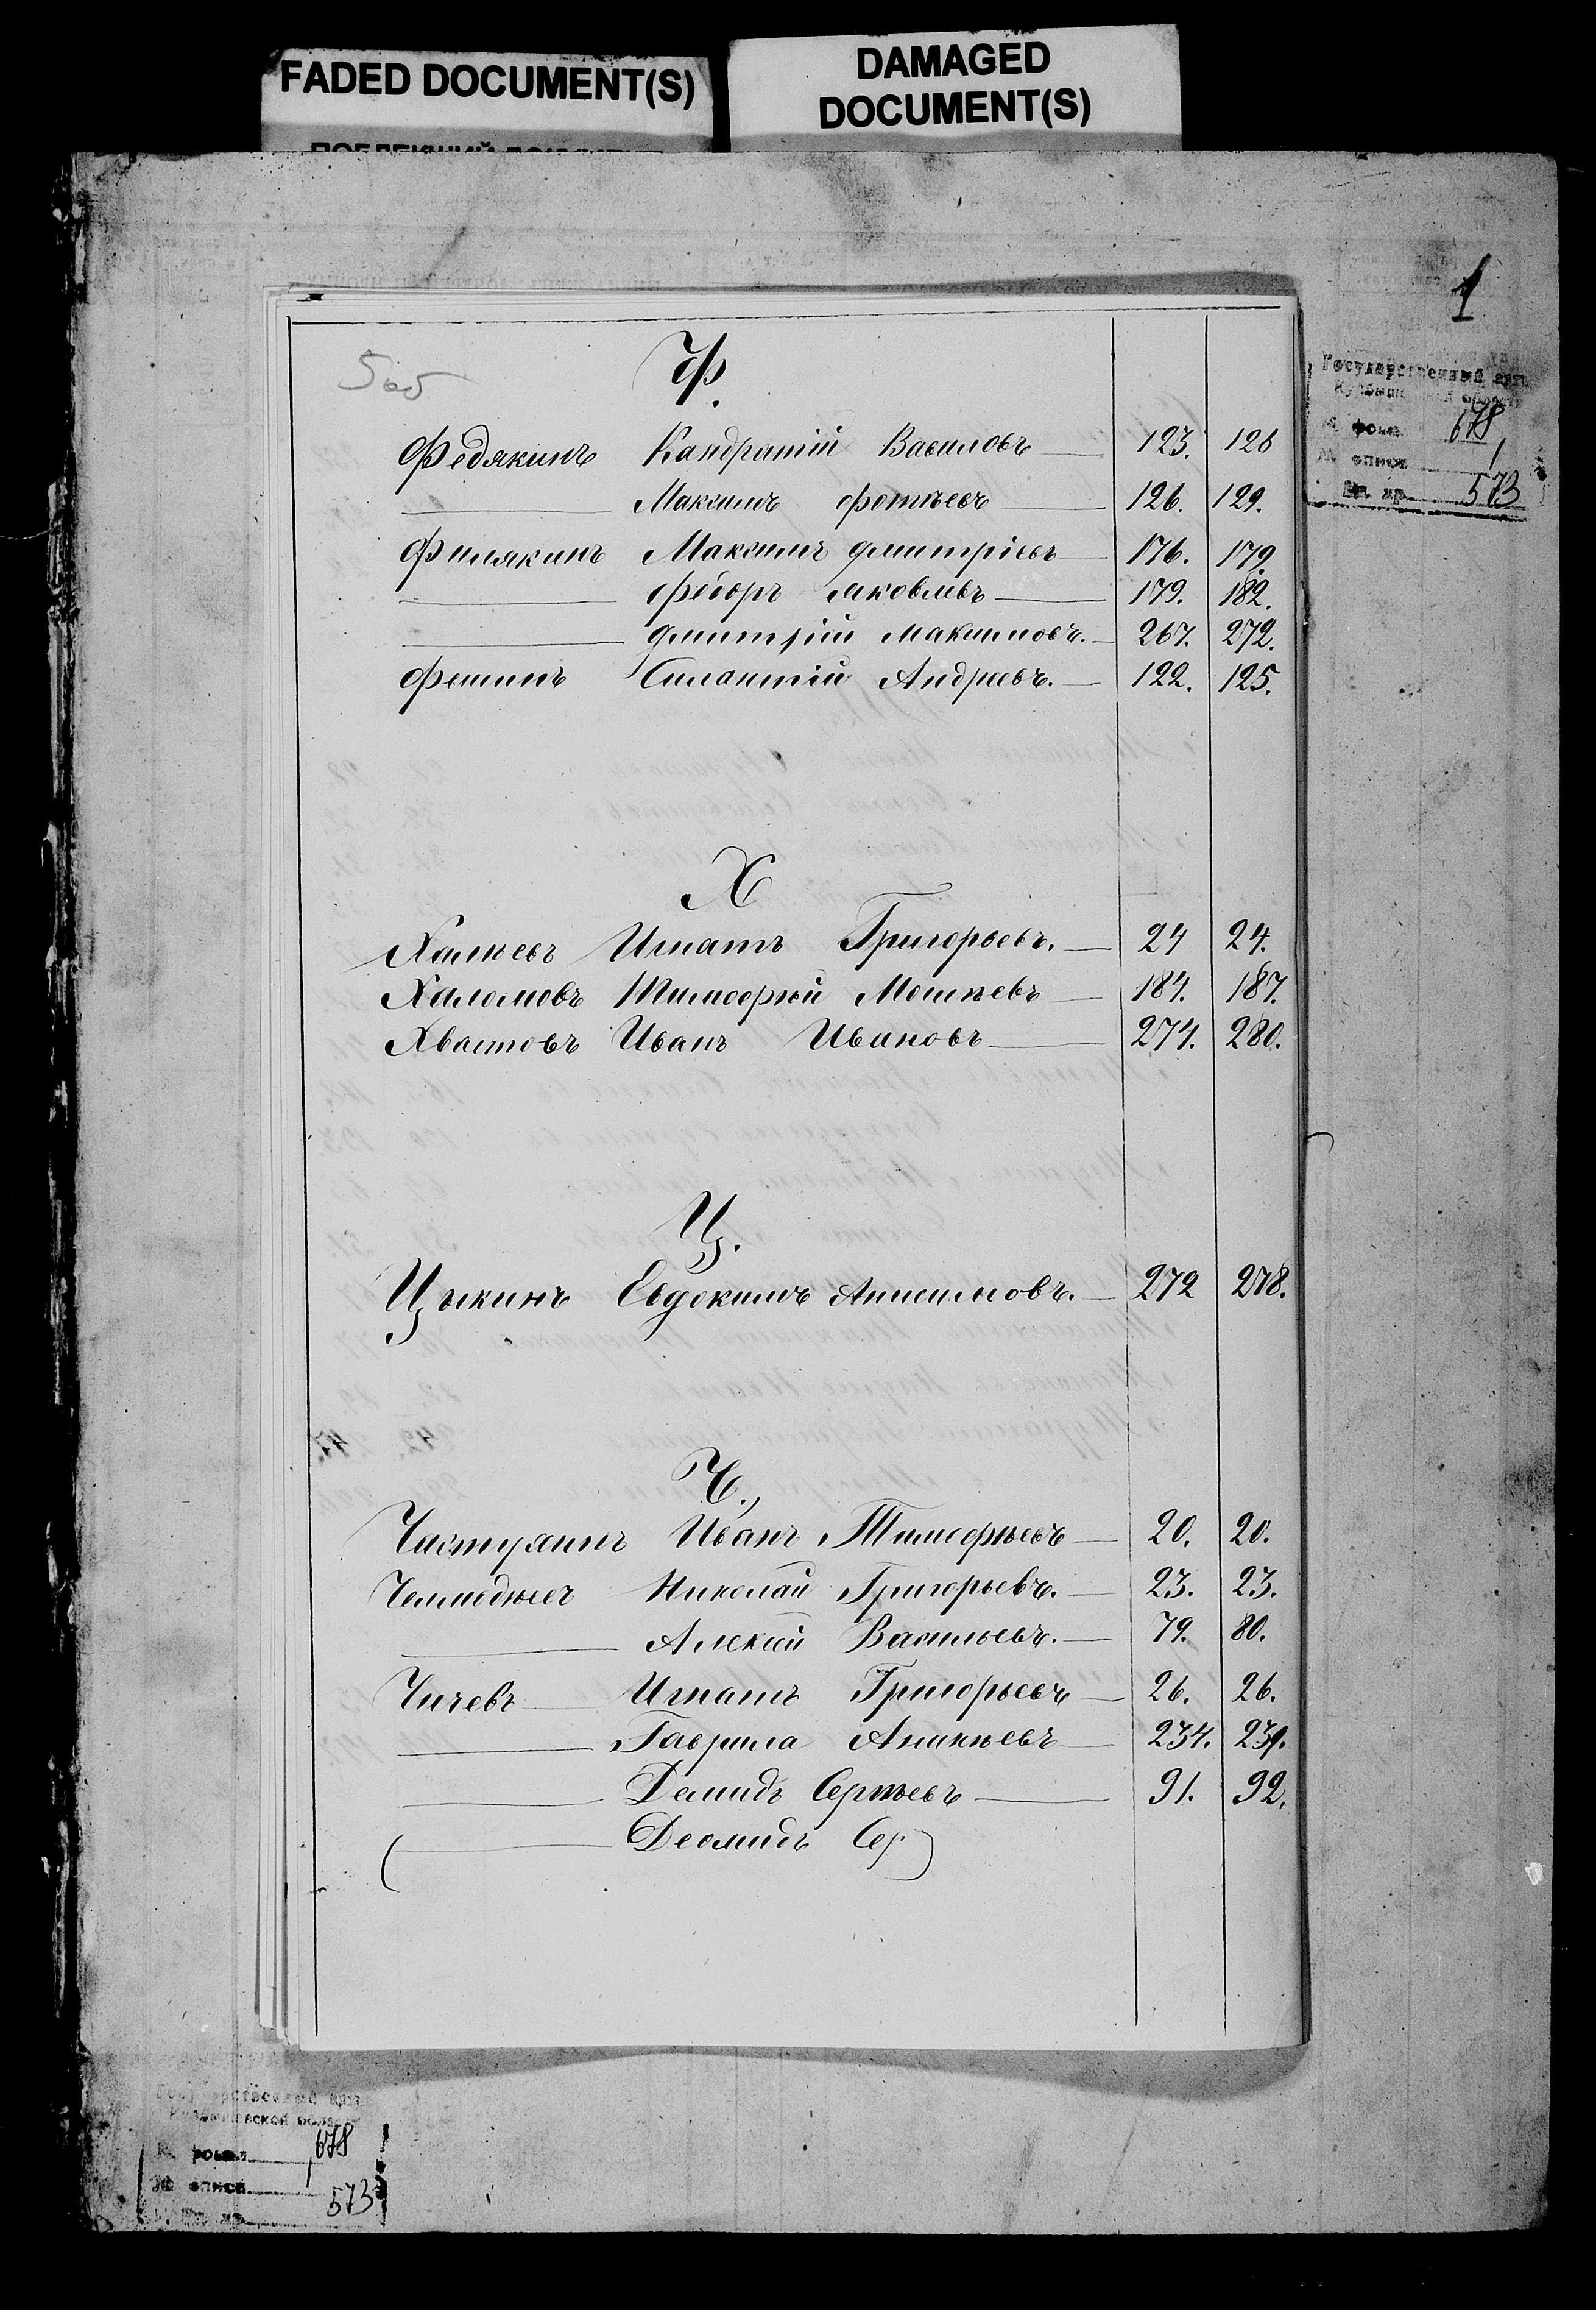 FADED DOCUMENT(S)
DAMAGED
DOCUMENT(S)
1
Государственный арх.
Куйбышевской области
№ фонд 678
№ описи 1
Ед. хр. 573
5об
Ф.
Федякинъ Кандратій Василовъ 123. 126
Максимъ Фотѣевъ 126. 129.
Филякинъ Максимъ Дмитріевъ 176. 179.
Федоръ Яковлевъ 179. 182.
Дмитрій Максимовъ. 267. 272.
Фешинъ Силантій Андреевъ. 122. 125.
Х
Халѣевъ Игнатъ Григорьевъ. 24 24.
Халомовъ Тимофѣй Мошнѣевъ 184. 187.
Хвастовъ Иванъ Ивановъ 274. 280.
Ц.
Цыкинъ Евдокимъ Анисимовъ. 272 278.
Ч.
Чистулинъ Иванъ Тимофѣевъ 20. 20.
Николай Григорьевъ. 23. 23.
Алексѣй Васильевъ. 79. 80.
Чичевъ Игнатъ Григорьевъ 26. 26.
Гаврила Ананьевъ 234. 239.
Демидъ Сергѣевъ 91. 92.
( Деомидъ Сер )
Государственный арх.
Куйбышевской области
№ фонд 678
№ описи 1
Ед. хр. 573